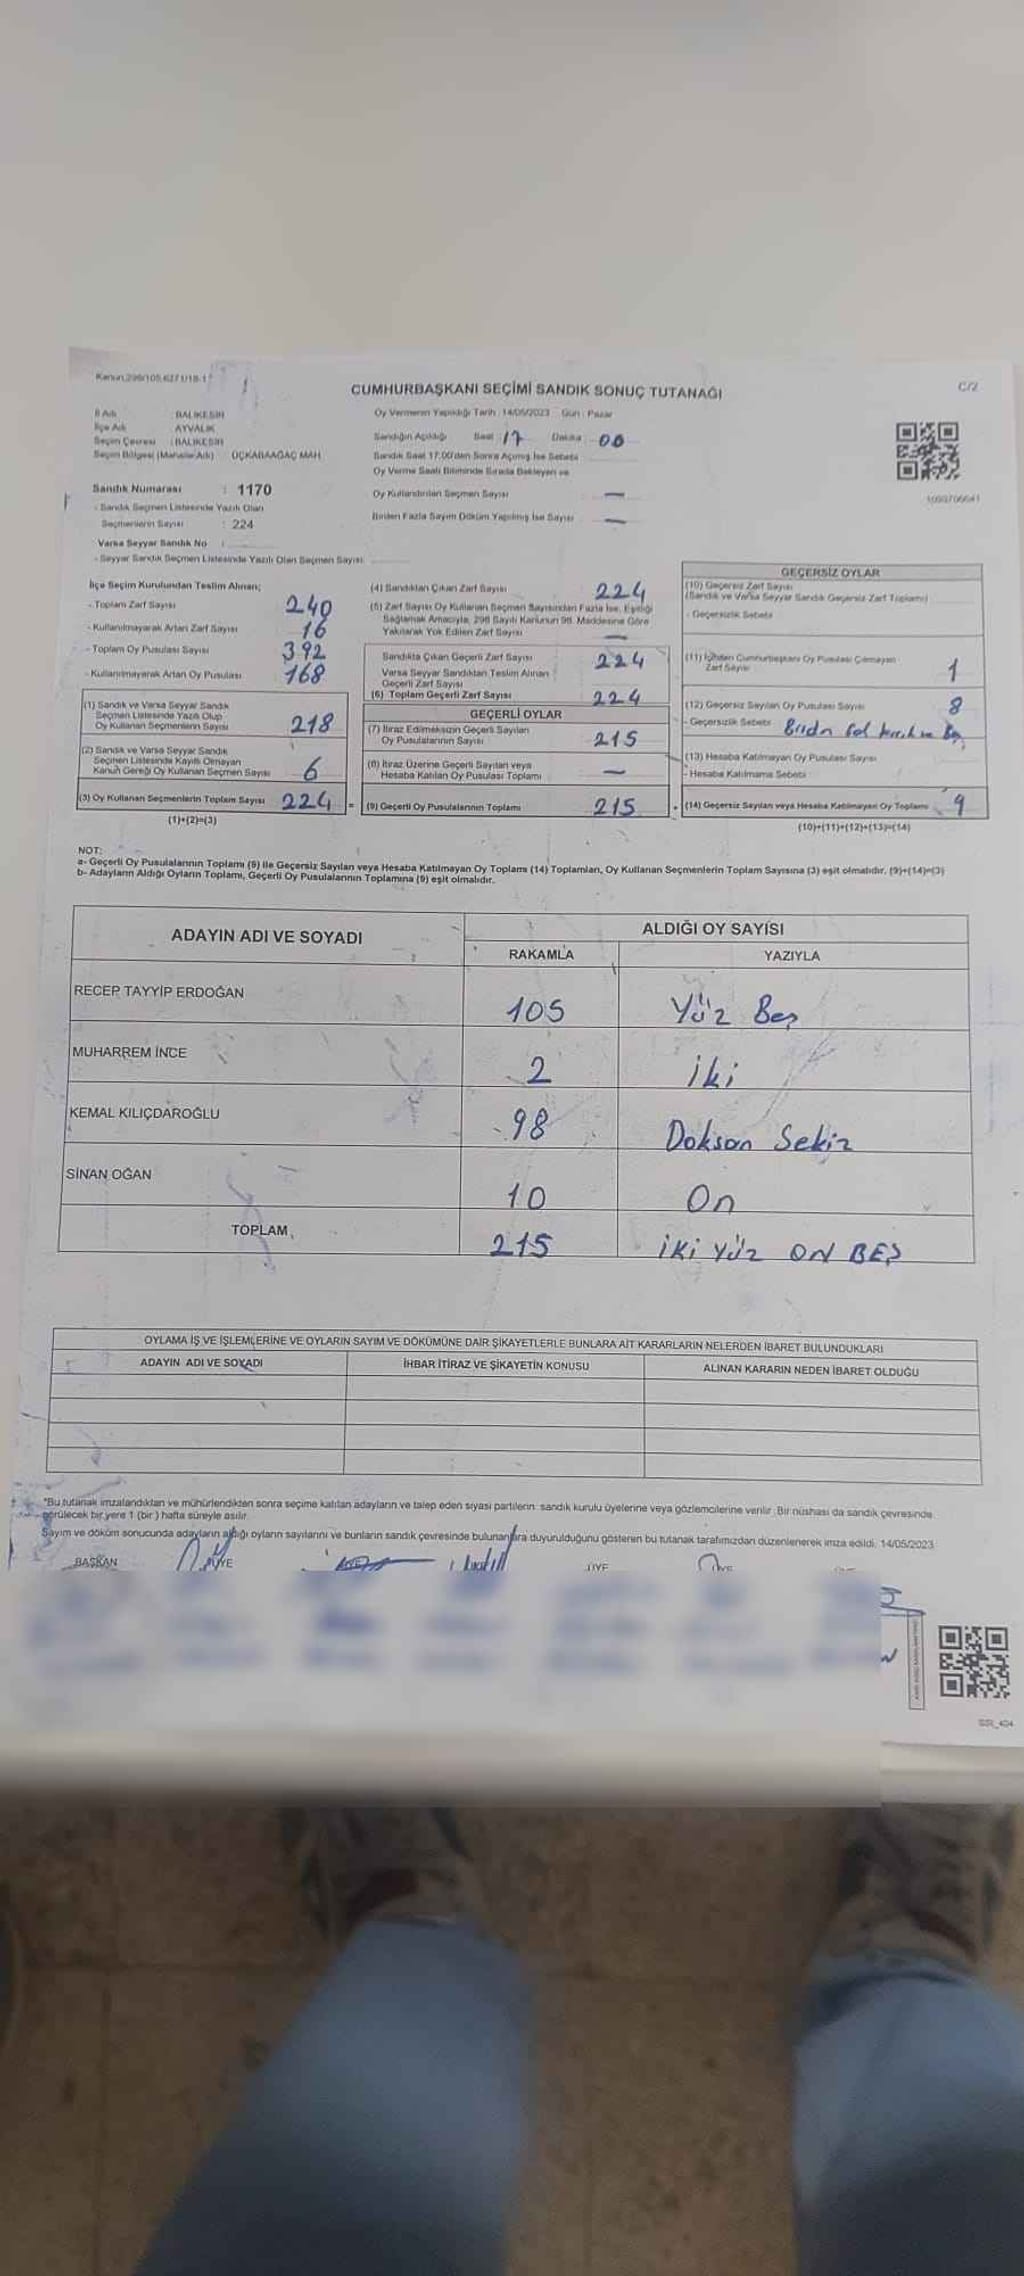 Kanun:298/105,6271/18-1
C/2
CUMHURBAŞKANI SEÇİMİ SANDIK SONUÇ TUTANAĞI
İl Adı : BALIKESİR
İlçe Adı : AYVALIK
Seçim Çevresi : BALIKESİR
Seçim Bölgesi (Mahalle Adı) : ÜÇKABAAĞAÇ MAH.
Sandık Numarası : 1170
- Sandık Seçmen Listesinde Yazılı Olan
Seçmenlerin Sayısı : 224
Varsa Seyyar Sandık No :
- Seyyar Sandık Seçmen Listesinde Yazılı Olan Seçmen Sayısı:
Oy Vermenin Yapıldığı Tarih : 14/05/2023 Gün : Pazar
Sandığın Açıldığı Saat : 17 Dakika : 00
Sandık Saat 17.00'den Sonra Açılmış İse Sebebi
Oy Verme Saati Bitiminde Sırada Bekleyen ve
Oy Kullandırılan Seçmen Sayısı —
Birden Fazla Sayım Döküm Yapılmış İse Sayısı —
İlçe Seçim Kurulundan Teslim Alınan;
- Toplam Zarf Sayısı 240
- Kullanılmayarak Artan Zarf Sayısı 16
- Toplam Oy Pusulası Sayısı 392
- Kullanılmayarak Artan Oy Pusulası 168
(1) Sandık ve Varsa Seyyar Sandık
Seçmen Listesinde Yazılı Olup
Oy Kullanan Seçmenlerin Sayısı 218
(2) Sandık ve Varsa Seyyar Sandık
Seçmen Listesinde Kayıtlı Olmayan
Kanun Gereği Oy Kullanan Seçmen Sayısı 6
(3) Oy Kullanan Seçmenlerin Toplam Sayısı 224 =
(1)+(2)=(3)
(4) Sandıktan Çıkan Zarf Sayısı 224
(5) Zarf Sayısı Oy Kullanan Seçmen Sayısından Fazla İse, Eşitliği
Sağlamak Amacıyla, 298 Sayılı Kanunun 98. Maddesine Göre
Yakılarak Yok Edilen Zarf Sayısı —
Sandıkta Çıkan Geçerli Zarf Sayısı 224
Varsa Seyyar Sandıktan Teslim Alınan
Geçerli Zarf Sayısı
(6) Toplam Geçerli Zarf Sayısı 224
GEÇERLİ OYLAR
(7) İtiraz Edilmeksizin Geçerli Sayılan
Oy Pusulalarının Sayısı 215
(8) İtiraz Üzerine Geçerli Sayılan veya
Hesaba Katılan Oy Pusulası Toplamı —
(9) Geçerli Oy Pusulalarının Toplamı 215 +
GEÇERSİZ OYLAR
(10) Geçersiz Zarf Sayısı
(Sandık ve Varsa Seyyar Sandık Geçersiz Zarf Toplamı)
- Geçersizlik Sebebi
(11) İçinden Cumhurbaşkanı Oy Pusulası Çıkmayan
Zarf Sayısı 1
(12) Geçersiz Sayılan Oy Pusulası Sayısı 8
- Geçersizlik Sebebi
(13) Hesaba Katılmayan Oy Pusulası Sayısı
- Hesaba Katılmama Sebebi
(14) Geçersiz Sayılan veya Hesaba Katılmayan Oy Toplamı 9
(10)+(11)+(12)+(13)=(14)
NOT:
a- Geçerli Oy Pusulalarının Toplamı (9) ile Geçersiz Sayılan veya Hesaba Katılmayan Oy Toplamı (14) Toplamları, Oy Kullanan Seçmenlerin Toplam Sayısına (3) eşit olmalıdır. (9)+(14)=(3)
b- Adayların Aldığı Oyların Toplamı, Geçerli Oy Pusulalarının Toplamına (9) eşit olmalıdır.
ADAYIN ADI VE SOYADI
ALDIĞI OY SAYISI
RAKAMLA YAZIYLA
RECEP TAYYİP ERDOĞAN 105 Yüz Beş
MUHARREM İNCE 2 İki
KEMAL KILIÇDAROĞLU 98 Doksan Sekiz
SİNAN OĞAN 10 On
TOPLAM 215 İKİ YÜZ ON BEŞ
OYLAMA İŞ VE İŞLEMLERİNE VE OYLARIN SAYIM VE DÖKÜMÜNE DAİR ŞİKAYETLERLE BUNLARA AİT KARARLARIN NELERDEN İBARET BULUNDUKLARI
ADAYIN ADI VE SOYADI İHBAR İTİRAZ VE ŞİKAYETİN KONUSU ALINAN KARARIN NEDEN İBARET OLDUĞU
*Bu tutanak imzalandıktan ve mühürlendikten sonra seçime katılan adayların ve talep eden siyasi partilerin sandık kurulu üyelerine veya gözlemcilerine verilir. Bir nüshası da sandık çevresinde
görülecek bir yere 1 (bir) hafta süreyle asılır.
Sayım ve döküm sonucunda adayların aldığı oyların sayılarını ve bunların sandık çevresinde bulunanlara duyurulduğunu gösteren bu tutanak tarafımızdan düzenlenerek imza edildi. 14/05/2023
BAŞKAN ÜYE ÜYE ÜYE ÜYE